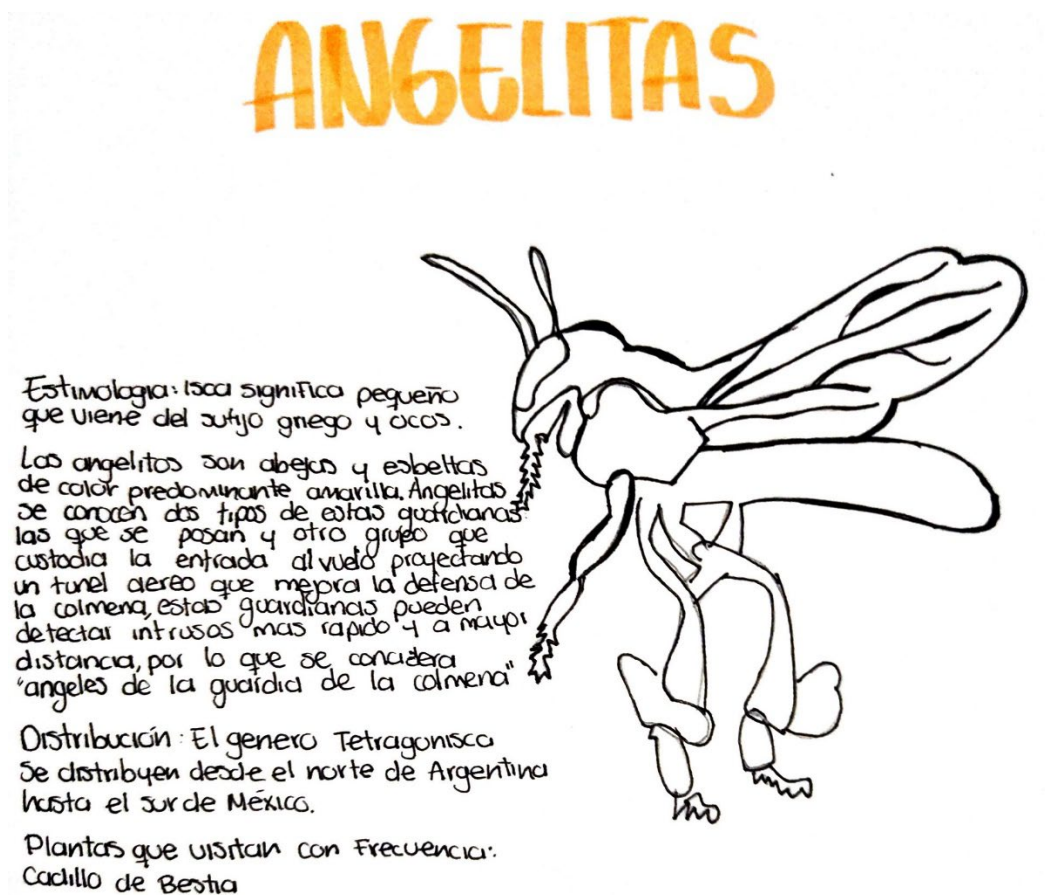 ANGELITAS
Estimologia: Isca significa pequeño
que viene del sufijo griego y ocos.
Las angelitos son abejas y esbeltas
de color predominante amarilla. Angelitas
se conocen dos tipos de estas guardianas:
las que se posan y otro grupo que
custodia la entrada al vuelo proyectando
un tunel aereo que mejora la defensa de
la colmena, estas guardianas pueden
detectar intrusos mas rapido y a mayor
distancia, por lo que se concidera
"angeles de la guardia de la colmena"
Distribución: El genero Tetragonisca
Se distribuyen desde el norte de Argentina
hasta el sur de México.
Plantas que visitan con Frecuencia:
Cadillo de Bestia